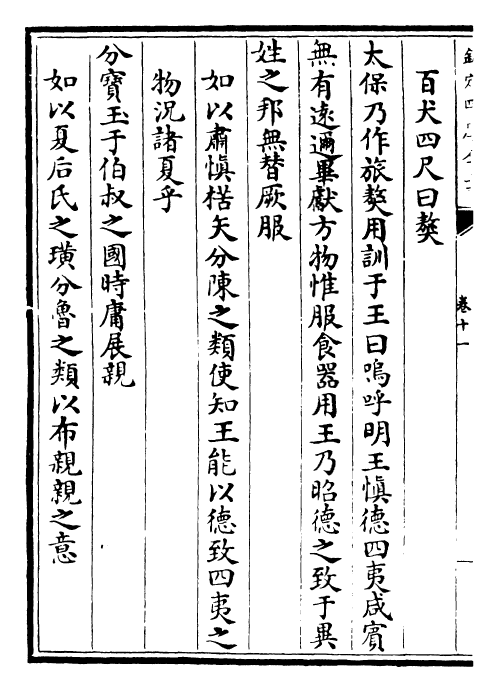 卷十一
百犬四尺曰獒
太保乃作旅獒用訓于王曰嗚呼明王慎德四夷咸賓
無有逺邇畢獻方物惟服食器用王乃昭德之致于異
姓之邦無替厥服
如以肅愼楛矢分陳之類使知王能以德致四夷之
物況諸夏乎
分寶玉于伯叔之國時庸展親
如以夏后氏之璜分魯之類以布親親之意